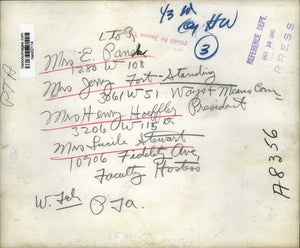 L To R
1/3
3
REFERENCE DEPT.
PRESS
Mrs E.
1280 W 108
Mrs Jerry Fort - Standing
3061 W 51 Ways + Means Com
Mrs Henry Hoeffler President
3206 W 115th
Mrs Lucile Stewart
10906 Fidelity Ave,
Faculty Hostess
W. Feb P Ta.
A8356
PTA